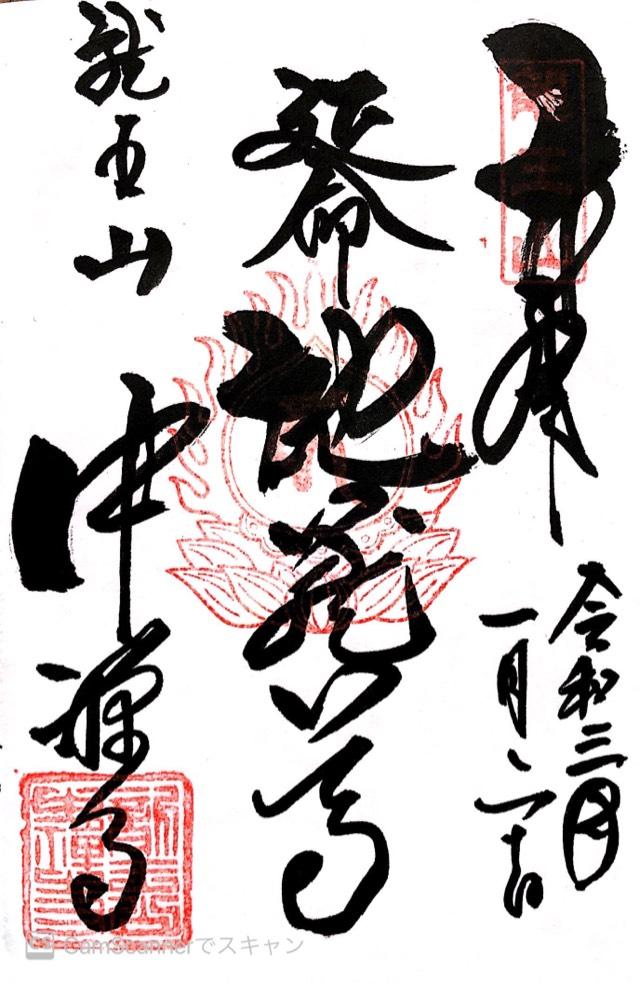 奉拝
令和三年
一月二十日
延命
地蔵尊
龍王山
中禅寺
CamScannerでスキャン